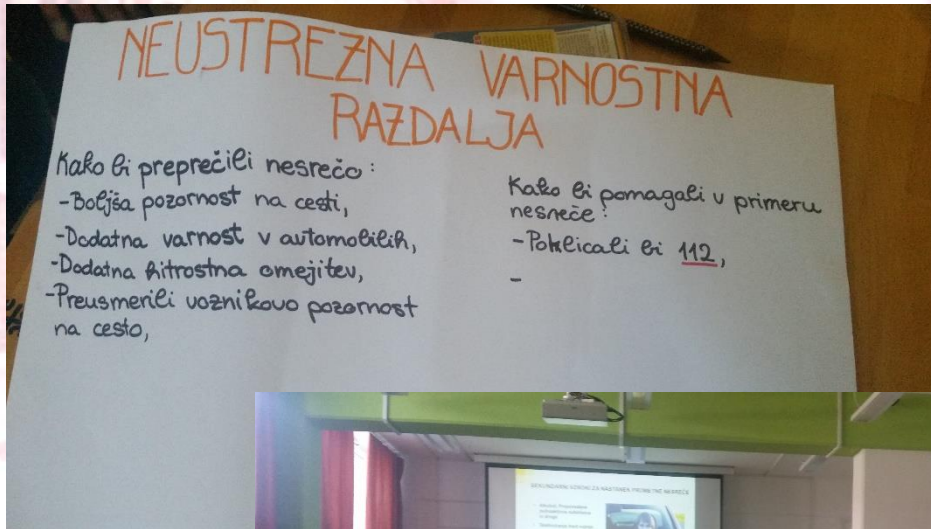 NEUSTREZNA VARNOSTNA
RAZDALJA
Kako bi preprečili nesrečo:
-Boljša pozornost na cesti,
-Dodatna varnost v automobilih,
-Dodatna hitrostna omejitev,
-Preusmerili voznikovo pozornost
na cesto,
Kako bi pomagali v primeru
nesreče:
-Poklicali bi 112,
-
SEKUNDARNI VZROKI ZA NASTANEK PROMETNE NESREČE